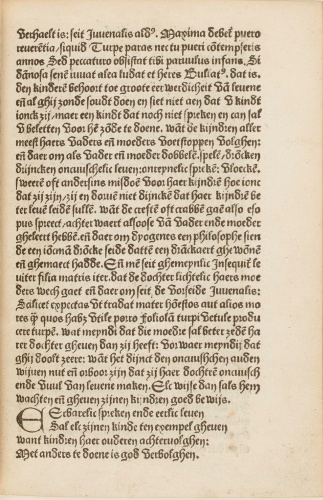 Verhaelt is: seit Juvenalis aldꝰ. Maxima debet̄ puero
reverētia/ siquid Turpe paras nec tu pueri cōtempseris
annos Sed peccaturo obsistat tibi parvulus infans. Si
dānosa senē iuvat alea ludat et heres Bullatꝰ. dat is.
den kinderē behoort toe groote eer werdicheit Vā levene
eñ al ghij zonde soudt doen en siet niet aen dat V kindt
ionck zij/ maer een kindt dat noch niet spreken en can sal
V beletten voor hē zōde te doene. wāt de kijndren aller
meest haers Vaders eñ moeders Voetstoppen Volghen:
eñ daer om als Vader eñ moeder dobbelē, spelē/ drōcken
drijncken onkuisschelic leven: onreynelic sprekē: Vloeckē,
sweerē oft andersins misdoē Voor haer kijndrē hoe ionc
dat zij zijn/ zij en dorvē niet dijnckē dat haer kijndrē be
ter levē leidē sullē. wāt de creeft oft crabbe gae also eso
pus spreect/ achter waert alsoose Vā Vader ende moeder
gheleert hebbē. eñ daer om dyogenes een philosophe sien
de een ionman drōcke seide dattē een drōckaert ghewōnē
eñ ghemaect hadde. Eñ mē seit ghemeynlic Insequit̄ le
viter filia matris iter. dat de dochter lichtelic haers moe
ders wech gaet eñ daer om seit de Vorseide Juvenalis:
Scilicet expectas Vt tradat mater hōestos aut alios mo
res q̄ȝ quos habȝ Vtile porro filiolam turpi Vetule produ
cere turpē. wat meyndi dat die moedre sal beter zedē ha
rer dochter gheven dan zij heeft: Vorwaer meyndij dat
ghij doolt zeere: wāt het dijnct den onkuisschen auden
wijven nut eñ orboor zijn dat zij haer dochterē onkuisch
ende Vuul Van levene maken. Elc wijse dan sals hem
wachten eñ gheven zijnen kijndren goed bewijs.
Eerbarelic spreken ende eerlic leven
Sal elc zijnen kinde ten exempel gheven
want kindren haer ouderen achtervolghen:
Met anders te doene is god Verbolghen.